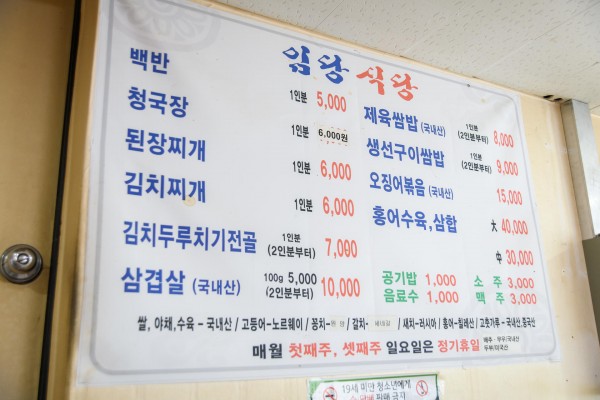 임당 식당
백반 1인분 5,000
청국장 1인분 6,000원
된장찌개 1인분 6,000
김치찌개 1인분 6,000
김치두루치기전골 1인분 (2인분부터) 7,000
삼겹살 (국내산) 100g 5,000 (2인분부터) 10,000
제육쌈밥 (국내산) 1인분 (2인분부터) 8,000
생선구이쌈밥 1인분 (2인분부터) 9,000
오징어볶음 (국내산) 15,000
홍어수육, 삼합 大 40,000
中 30,000
공기밥 1,000 소 주 3,000
음료수 1,000 맥 주 3,000
쌀, 야채,수육 - 국내산 / 고등어 - 노르웨이 / 꽁치- / 갈치- / 새치 - 러시아 / 홍어 - 칠레산 / 고춧가루 - 국내산,중국산
매월 첫째주, 셋째주 일요일은 정기휴일
배추·무우/국내산
두부/미국산
19세 미만 청소년에게
판매 금지